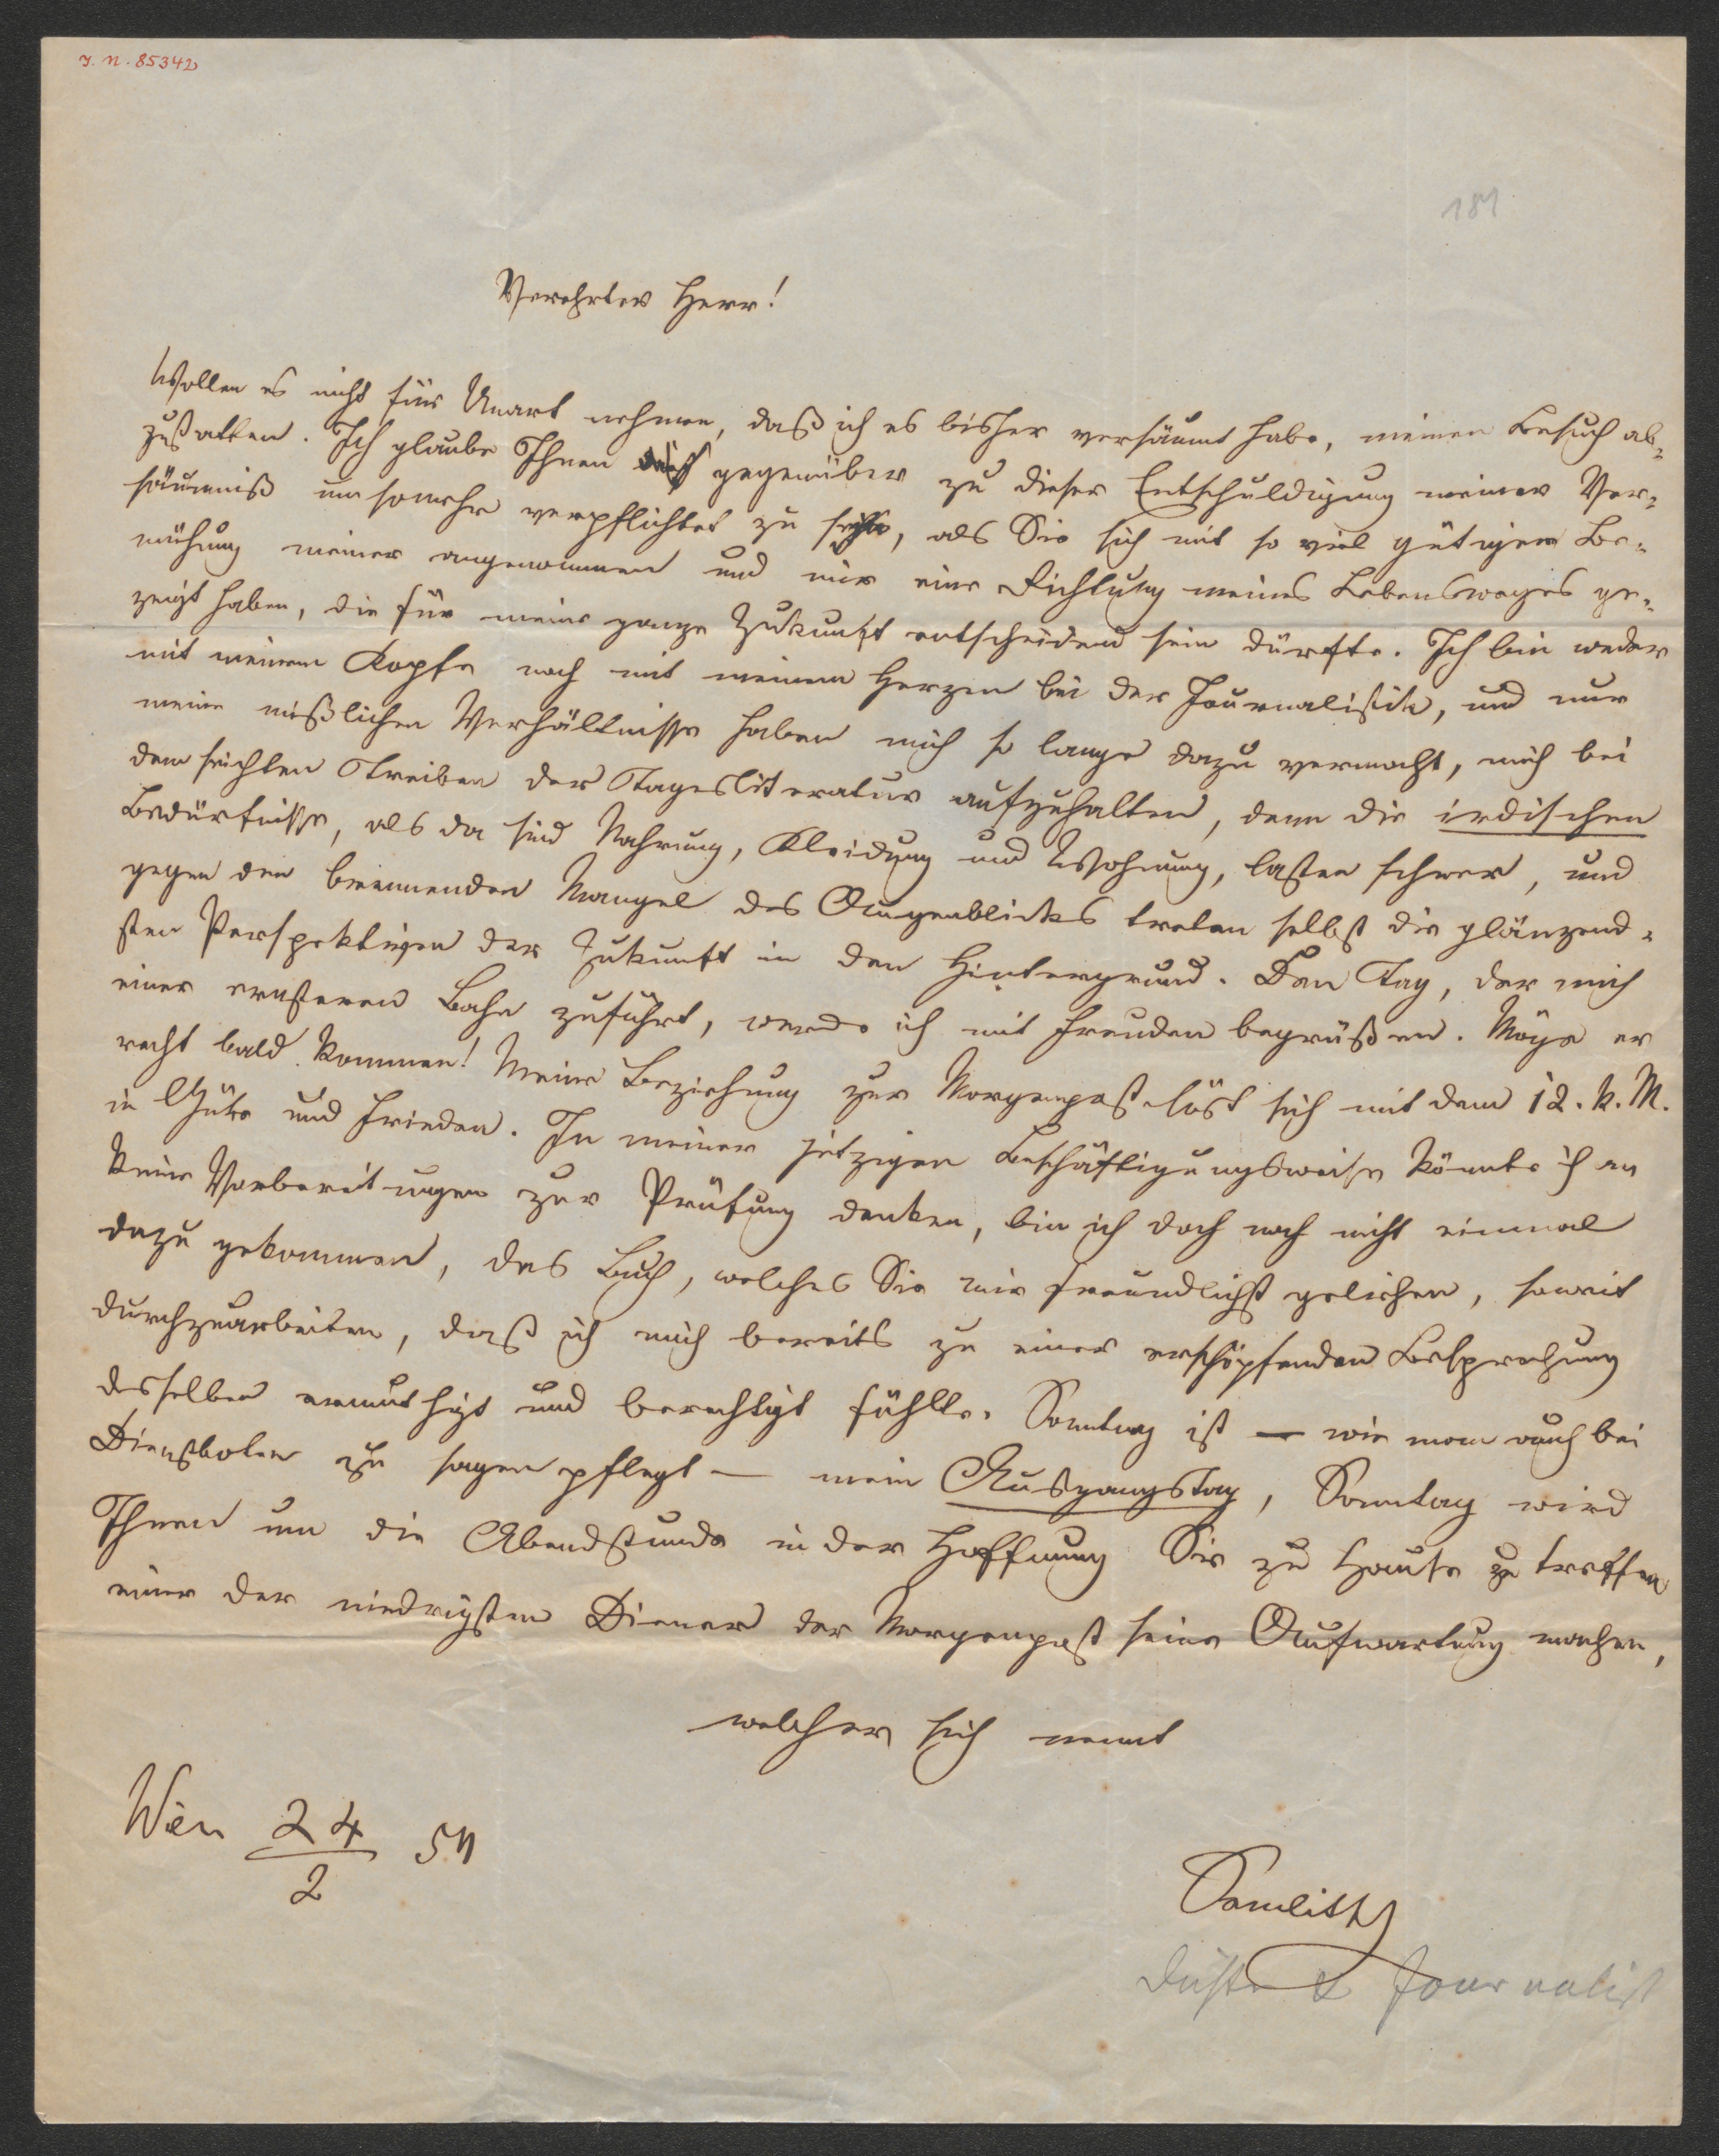 I. N. 85342
181
Verehrter Herr!
Wollen es nicht für Unart nehmen, daß ich es bisher versäumt habe, meinen Besuch ab-
zustatten. Ich glaube Ihnen gegenüber zu dieser Entschuldigung meiner Ver-
säumniß umsomehr verpflichtet zu sein, als Sie sich mit so viel gütiger Be-
mühung meiner angenommen und mir eine Richtung meines Lebensweges ge-
zeigt haben, die für meine ganze Zukunft entscheidend sein dürfte. Ich bin weder
mit meinem Kopfe noch mit meinem Herzen bei der Journalistik, und nur
meine mißlichen Verhältnisse haben mich so lange dazu vermocht, mich bei
dem seichten Treiben der Tagesliteratur aufzuhalten, denn die irdischen
Bedürfnisse, als da sind Nahrung, Kleidung und Wohnung, lasten schwer, und
gegen den brennenden Mangel des Augenblickes treten selbst die glänzend-
sten Perspektiven der Zukunft in den Hintergrund. Den Tag, der mich
einer ernsteren Bahn zuführt, werde ich mit Freuden begrüßen. Möge er
recht bald kommen! Meine Beziehung zur Morgenpost löst sich mit dem 12. k. M.
in Güte und Frieden. In meiner jetzigen Beschäftigungsweise könnte ich an
keine Vorbereitungen zur Prüfung denken, bin ich doch noch nicht einmal
dazu gekommen, das Buch, welches Sie mir freundlichst geliehen, soweit
durchzuarbeiten, daß ich mich bereits zu einer erschöpfenden Besprechung
desselben ermuthigt und berechtigt fühlte. Sonntag ist — wie man auch bei
Dienstboten zu sagen pflegt — mein Ausgangstag, Sonntag wird
Ihnen um die Abendstunde in der Hoffnung Sie zu Hause zu treffen
einer der niedrigsten Diener der Morgenpost seine Aufwartung machen,
welcher sich nennt
Wien 24/2 57
& Journalist